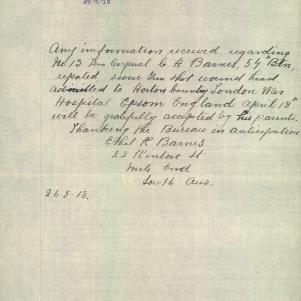 Any imformation received regarding
No 13 Corporal C. A Barnes, 54th Btn,
repoted sivue Gun shot wound head
admitted to Horton County London War
Hospital Epsom England april 18th
will be gratefully accepted by his parents.
Thanking the Bureau in anticipation
Ethel R Barnes
22 Kintore St
mile End
South Aus.
26-5-18.